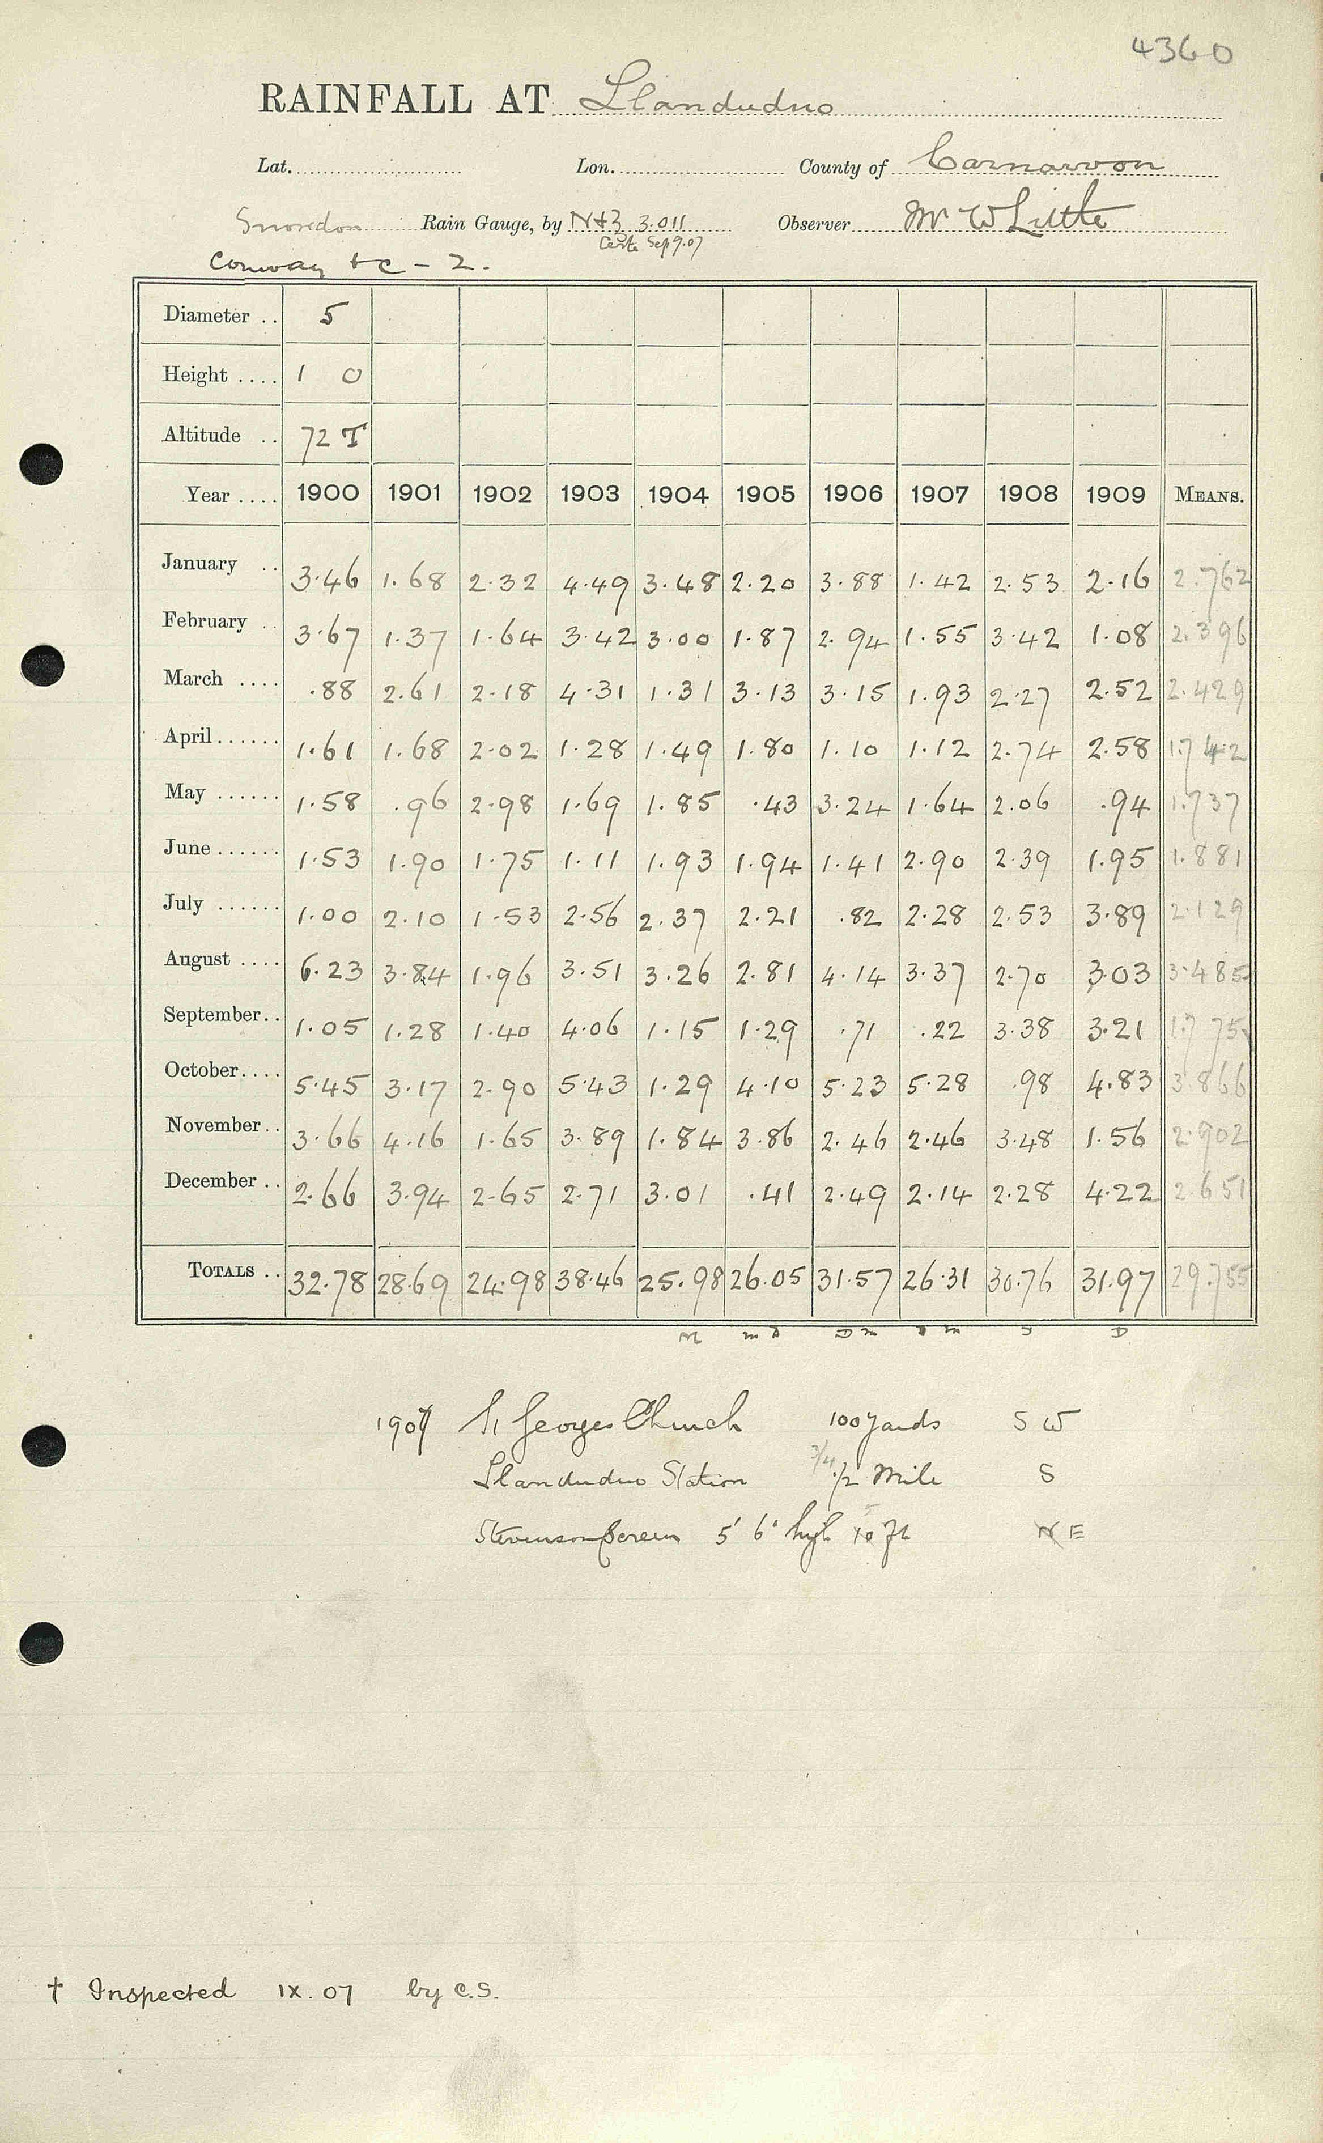 4360
RAINFALL AT Llandudno
Lat. Lon. County of Carnarvon
Snowdon Rain Gauge, by N+Z 3.011 Observer Mr W Little
Certe Sep 9.07
Conway +c - 2.
Diameter .. 5
Height .... 1 0
Altitude .. 72 T
Year .... 1900 1901 1902 1903 1904 1905 1906 1907 1908 1909 MEANS.
January .. 3.46 1.68 2.32 4.49 3.48 2.20 3.88 1.42 2.53 2.16 2.762
February .. 3.67 1.37 1.64 3.42 3.00 1.87 2.94 1.55 3.42 1.08 2.396
March .... .88 2.61 2.18 4.31 1.31 3.13 3.15 1.93 2.27 2.52 2.429
April...... 1.61 1.68 2.02 1.28 1.49 1.80 1.10 1.12 2.74 2.58 1.742
May ...... 1.58 .96 2.98 1.69 1.85 .43 3.24 1.64 2.06 .94 1.737
June ...... 1.53 1.90 1.75 1.11 1.93 1.94 1.41 2.90 2.39 1.95 1.881
July ...... 1.00 2.10 1.53 2.56 2.37 2.21 .82 2.28 2.53 3.89 2.129
August .... 6.23 3.84 1.96 3.51 3.26 2.81 4.14 3.37 2.70 3.03 3.485
September.. 1.05 1.28 1.40 4.06 1.15 1.29 .71 .22 3.38 3.21 1.775
October.... 5.45 3.17 2.90 5.43 1.29 4.10 5.23 5.28 .98 4.83 3.866
November.. 3.66 4.16 1.65 3.89 1.84 3.86 2.46 2.46 3.48 1.56 2.902
December .. 2.66 3.94 2.65 2.71 3.01 .41 2.49 2.14 2.28 4.22 2.651
TOTALS .. 32.78 28.69 24.98 38.46 25.98 26.05 31.57 26.31 30.76 31.97 29.755
M m D D m D m S D
1907 St Georges Church 100 yards S W
Llandudno Station 3/4 1/2 Mile S
Stevenson Screen 5' 6" high 10 ft N E
† Inspected IX. 07 by C.S.